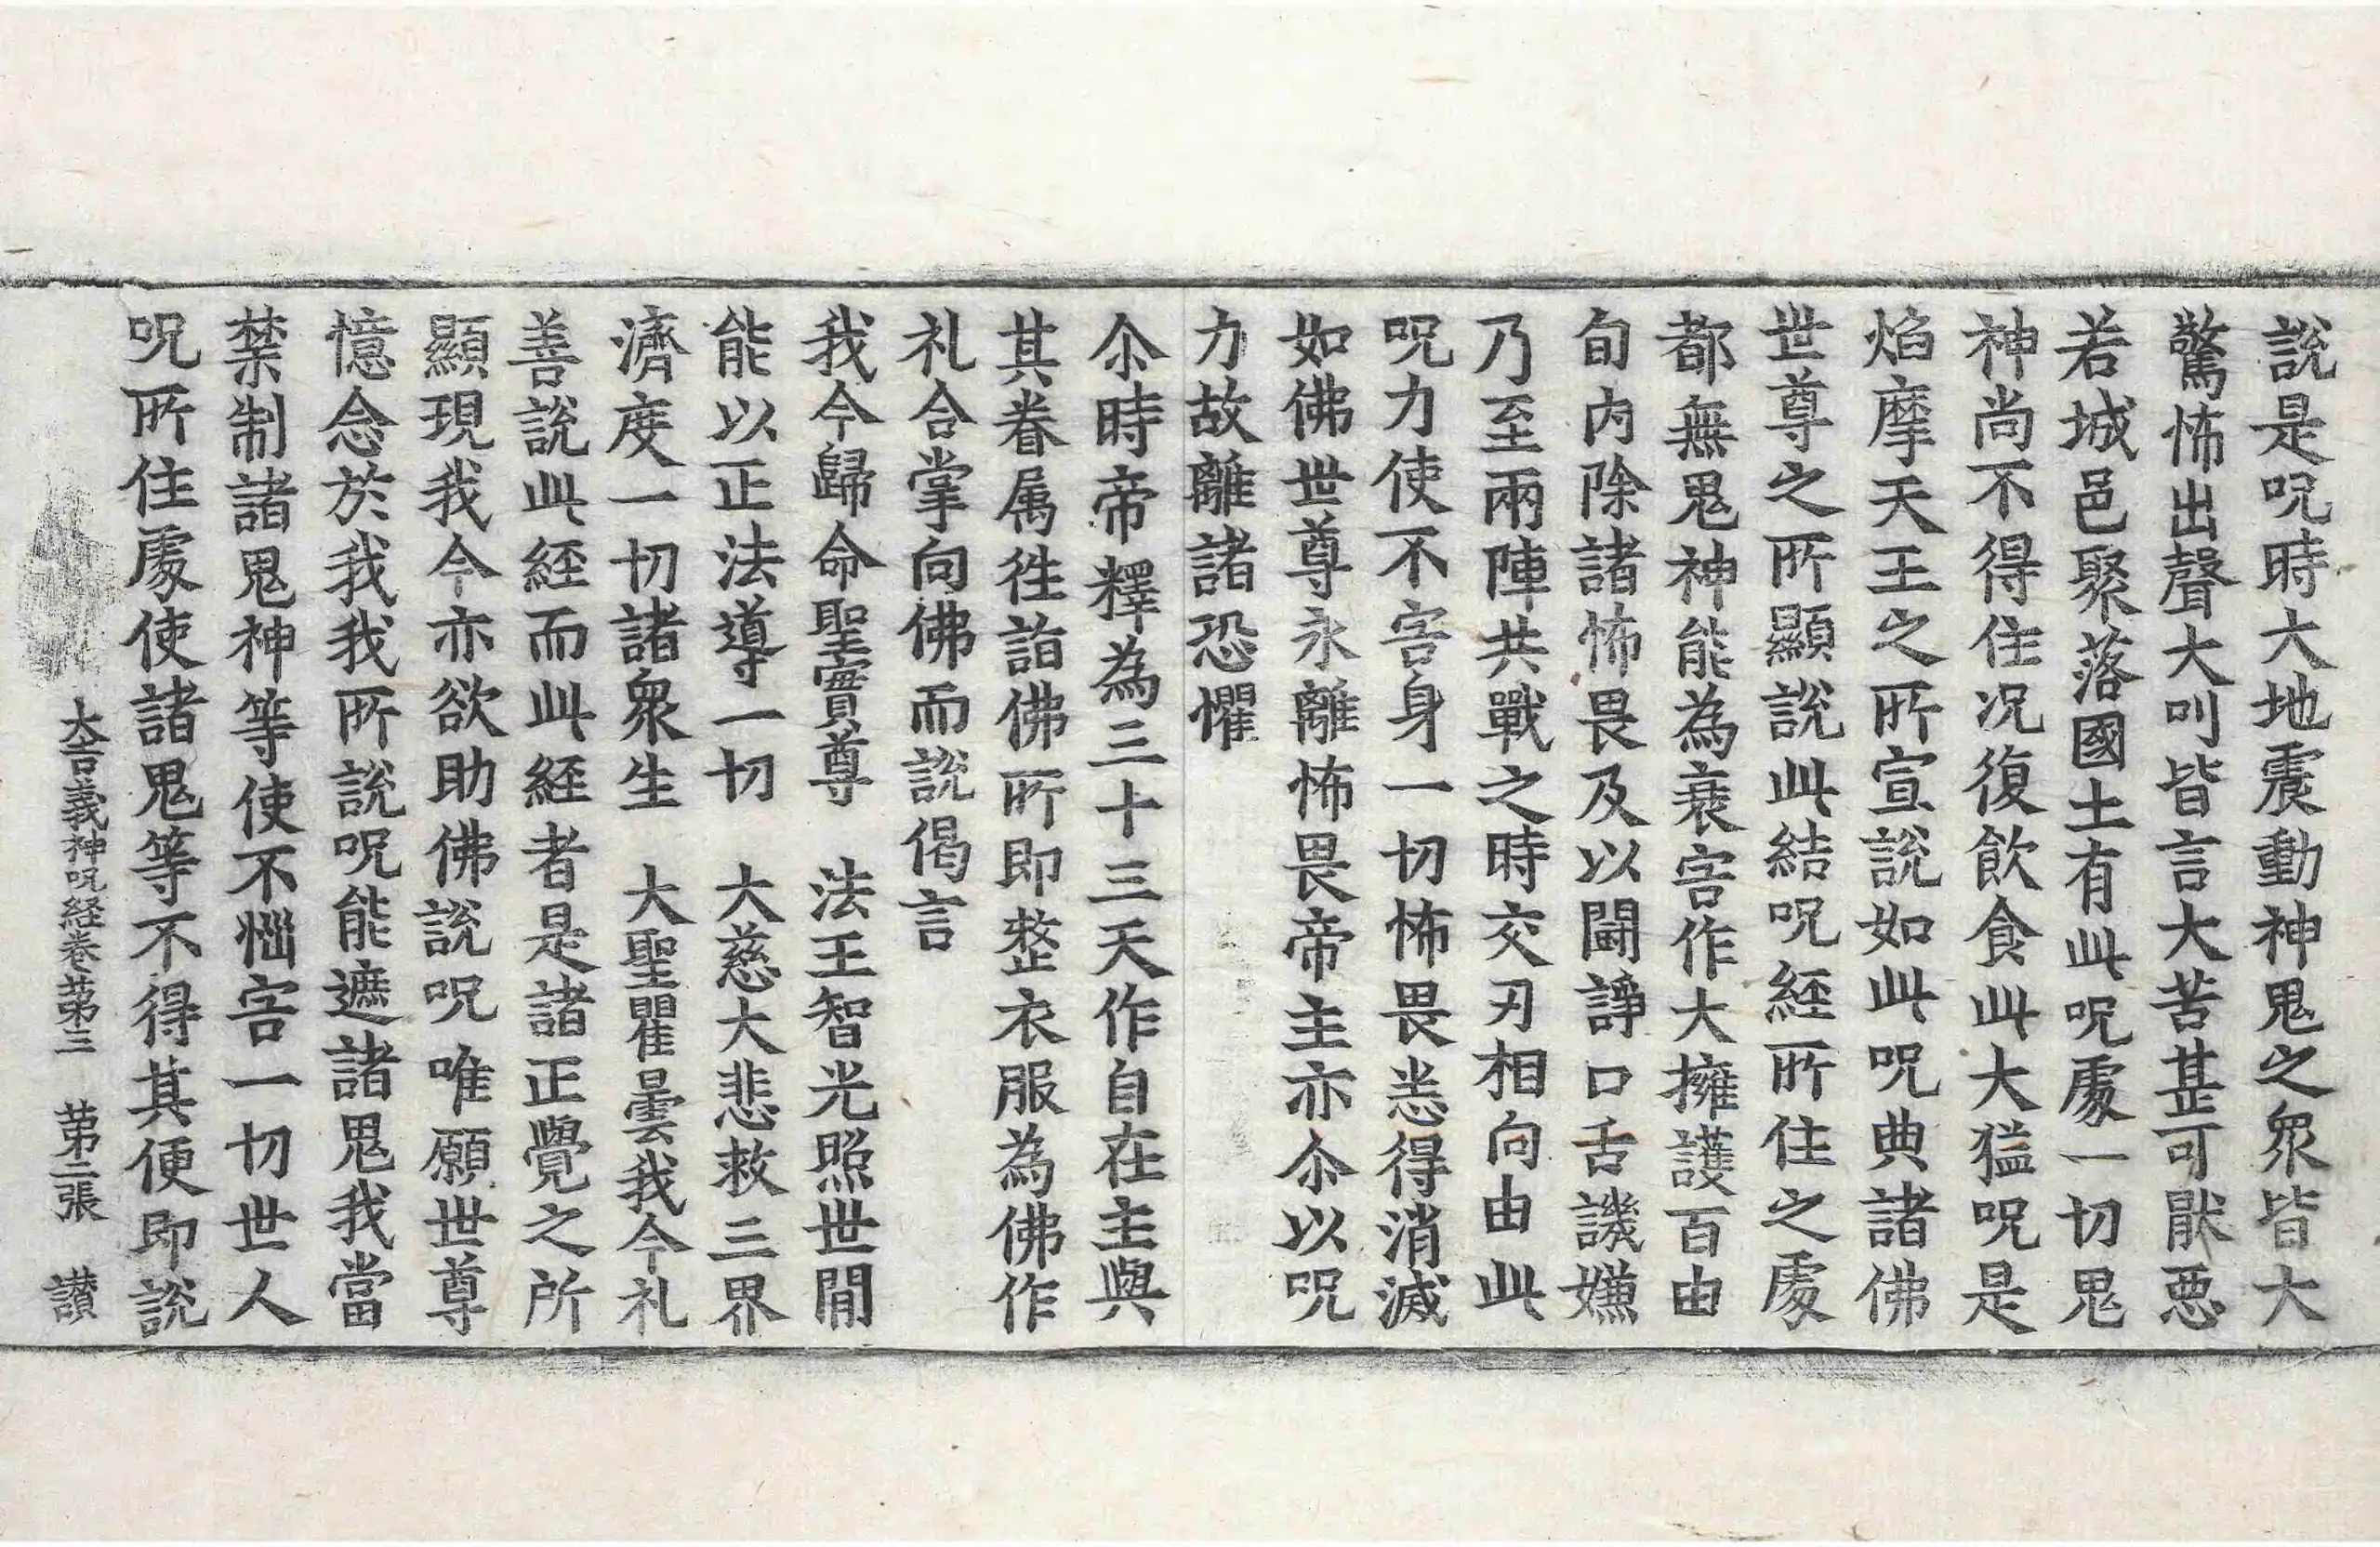 說是呪時大地震動神鬼之衆皆大
驚怖出聲大叫皆言大苦甚可猒惡
若城邑聚落國土有此呪處一切鬼
神尚不得住况復飲食此大猛呪是
焰摩天王之所宣說如此呪典諸佛
世尊之所顯說此結呪經所住之處
都無鬼神能為衰害作大擁護百由
旬內除諸怖畏及以鬪諍口舌譏嫌
乃至兩陣共戰之時交刃相向由此
呪力使不害身一切怖畏悉得消滅
如佛世尊永離怖畏帝主亦尒以呪
力故離諸恐懼
尒時帝釋為三十三天作自在主與
其眷属徃詣佛所即整衣服為佛作
礼合掌向佛而說偈言
我今歸命聖實尊　法王智光照世閒
能以正法導一切　大慈大悲救三界
濟度一切諸衆生　大聖瞿曇我今礼
善說此経而此経者是諸正覺之所
顯現我今亦欲助佛說呪唯願世尊
憶念於我我所說呪能遮諸鬼我當
禁制諸鬼神等使不惱害一切世人
呪所住處使諸鬼等不得其便即說
大吉義神呪経卷苐三　苐二張　讃